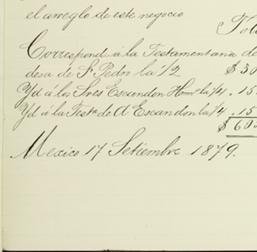 el arreglo de este negocio
Tot
Correspond á la Testamentaria de
desa de Sn Pedro la 1/2 $ 30
Yd á los Sres Escandon Hnos la 1/4 . 15
Yd á la Testa de A Escandon la 1/4 . 15
$ 60
Mexico 17 Setiembre 1879.